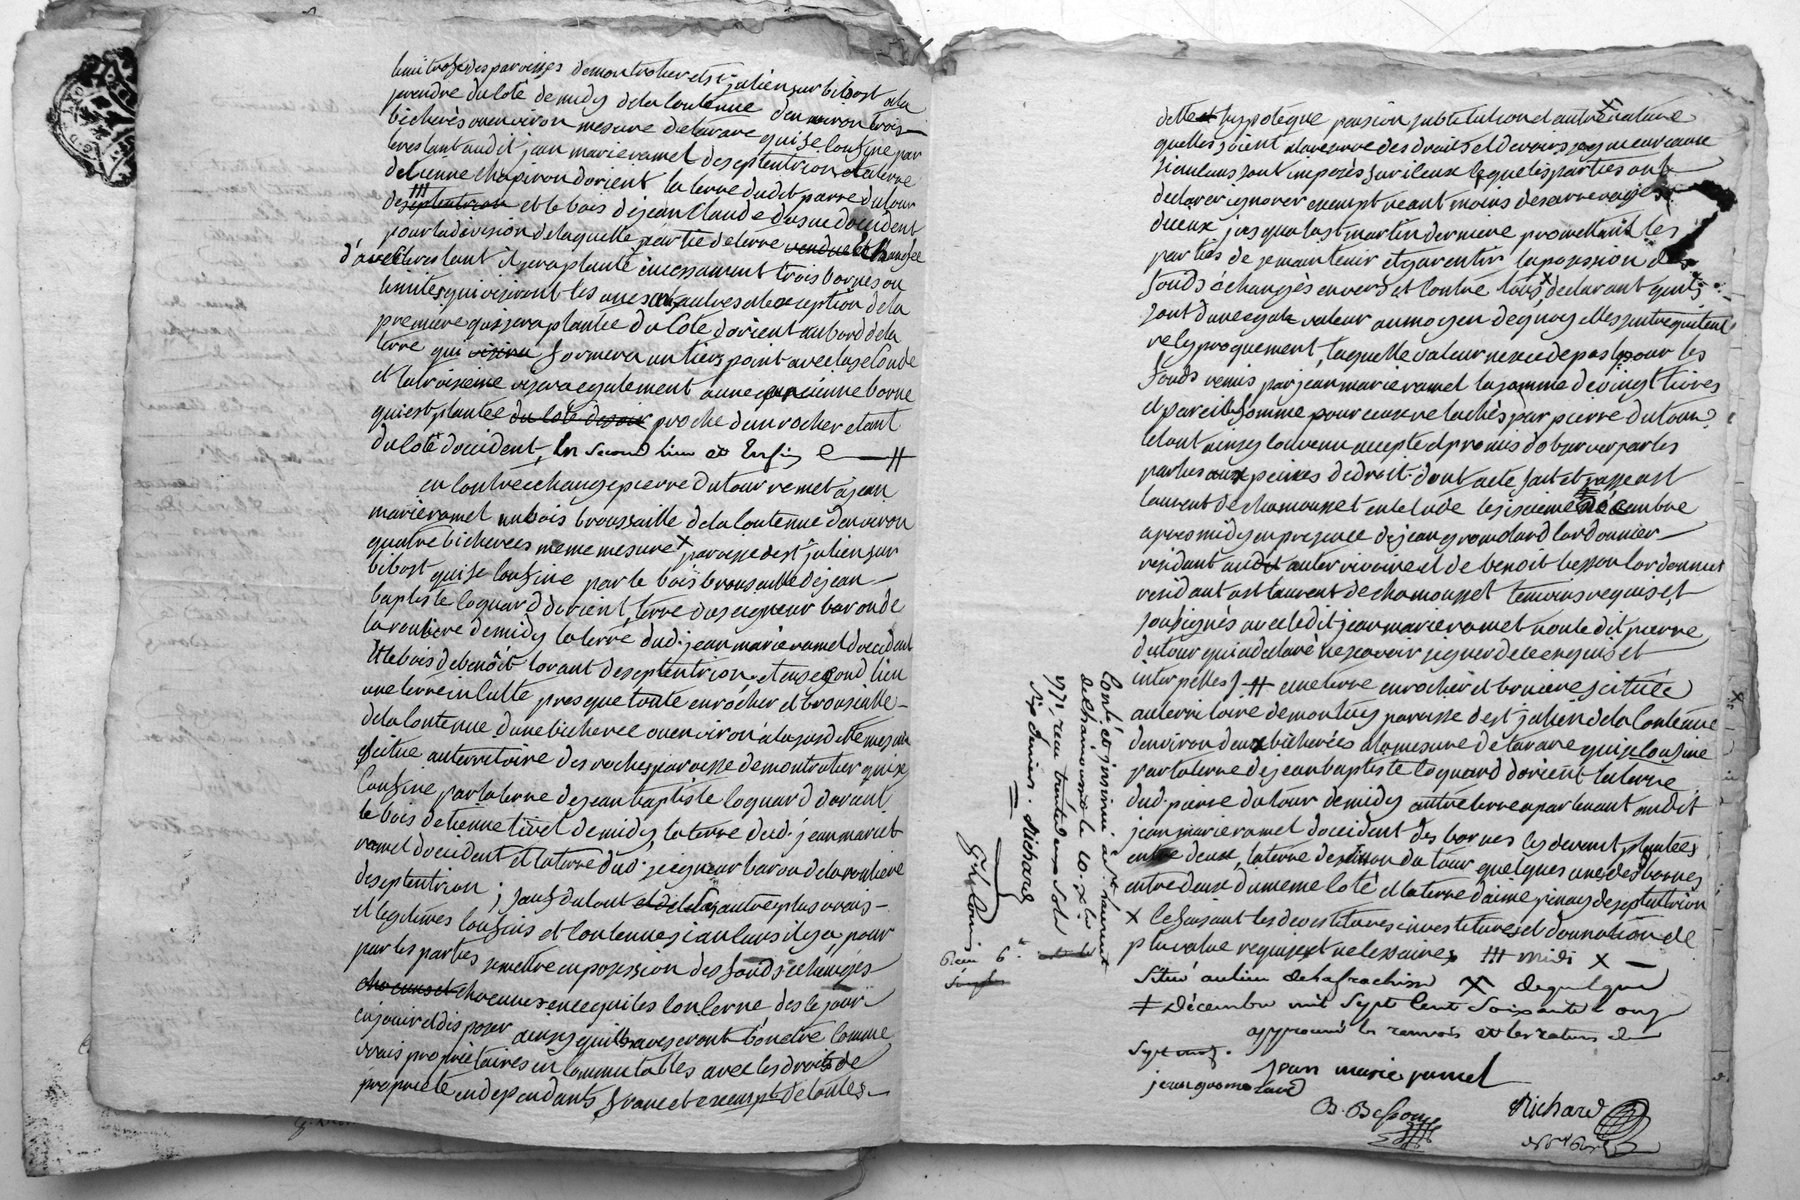 limitrofe des paroisses de montrotier et st julien sur bibost a la
prendre du coté de midy de la contenue d'environ trois
bicherés ou environ mesure de tarare qui se confine par
le restant audit jean marie ramel de septentrion la terre
d'etienne chapiron d'orient la terre dudit pierre dutour
de septentrion et le bois de jean Claude dusuc d'occident
pour la division de laquelle partie de terre vendue échangée
d'avec le restant il sera planté incessament trois bornes ou
limites qui viseront les unes aux autres a l'exception de la
premiere qui sera plantée du coté d'orient au bord de la
terre qui visera formera un tiers point avec la seconde
et la troisieme visera egalement a une ancienne borne
qui est plantée du coté de soir proche d'un rocher etant
du coté d'occident, En second lieu et Enfin
en contre échange pierre dutour remet a jean
marie ramel un bois broussaille de la contenue d'environ
quatre bicherées meme mesure X paroisse de st julien sur
bibost qui se confine par le bois broussaille de jean
baptiste coquard d'orient, terre du seigneur baron de
la rouliere de midy la terre dud. jean marie ramel d'occident
et le bois de benoit lorant de septentrion. et en second lieu
une terre inculte presque toute en rocher et broussaille
de la contenue d'une bicherée ou environ a la susditte mesure
scitue au territoire des roches paroisse de montrotier qui se
confine par la terre de jean baptiste coquard d'orient
le bois d'etienne tivel de midy, la terre dud. jean marie
ramel d'occident et la terre dud. seigneur baron de la rouliere
de septentrion ; sauf du tout et de les autres plus vrais
et legitimes confins et contenues si ailleurs il y a, pour
par les parties se mettre en possession des fonds échangés
chacunset chacunes en ce qui les concerne des ce jour
en jouir et disposer ainsy qu'ils aviseront bon etre comme
vrais proprietaires incommutables avec les droits de
proprieté en dependants, franc et exempt de toutes
dette et hypoteque pension substitution et autre X nature
quelles soient a la reserve des droits et devoirs seigneuriaux
si aucuns sont imposés sur iceux lesquels les parties ont
declaré ignorer exempt neant moins des arrerages
d'iceux jusqu'a la st martin derniere promettant les
parties de se maintenir et garentir la possession des
fonds échangés envers et contre tous X declarant qu'ils
sont d'une egale valeur au moyen de quoy elles s'entrequittent
reciproquement, laquelle valeur n'excede pas pour les
fonds remis par jean marie ramel la somme de vingt livres
et pareille somme pour ceux relachés par pierre dutour
le tout ainsy convenu accepté et promis d'observer par les
parties aux peines de droit. dont acte fait et passé a st
laurent de chamousset en letude le sixieme décembre
apres midy en presence de jean gromolard cordonnier
residant audit auterrivoire et de benoit besson cordonnier
residant a st laurent de chamousset temoins requis et
soussignés avec ledit jean marie ramel non ledit pierre
dutour qui a declaré ne scavoir signer de ce enquis et
interpellés) # une terre en rocher et bruiere scituée
au territoire de montuy paroisse de st julien de la contenue
d'environ deux bicherées a la mesure de tarare qui se confine
par la terre de jean baptiste coquard d'orient la terre
dud. pierre dutour de midy autre terre apartenant audit
jean marie ramel d'occident des bornes cy devant plantées
entre deux, la terre de simon du tour quelques unes des bornes
entre deux du meme coté et la terre d'aime pinay de septentrion
X se faisant les devestitures investitures et donnation de
plus value requises et necessaires ⧻ midi X
Situé au lieu de la frachisse X de quelque
≠ décembre mil sept cent soixante onze
approuvé les renvois et les ratures de
sept mots.
jean marie ramel
jean gromolard
B. Besson
Richard
Cont. et insinué a st laurent
de chamousset le 10. X.bre
1771 reçu trente deux sols
six deniers. Richard